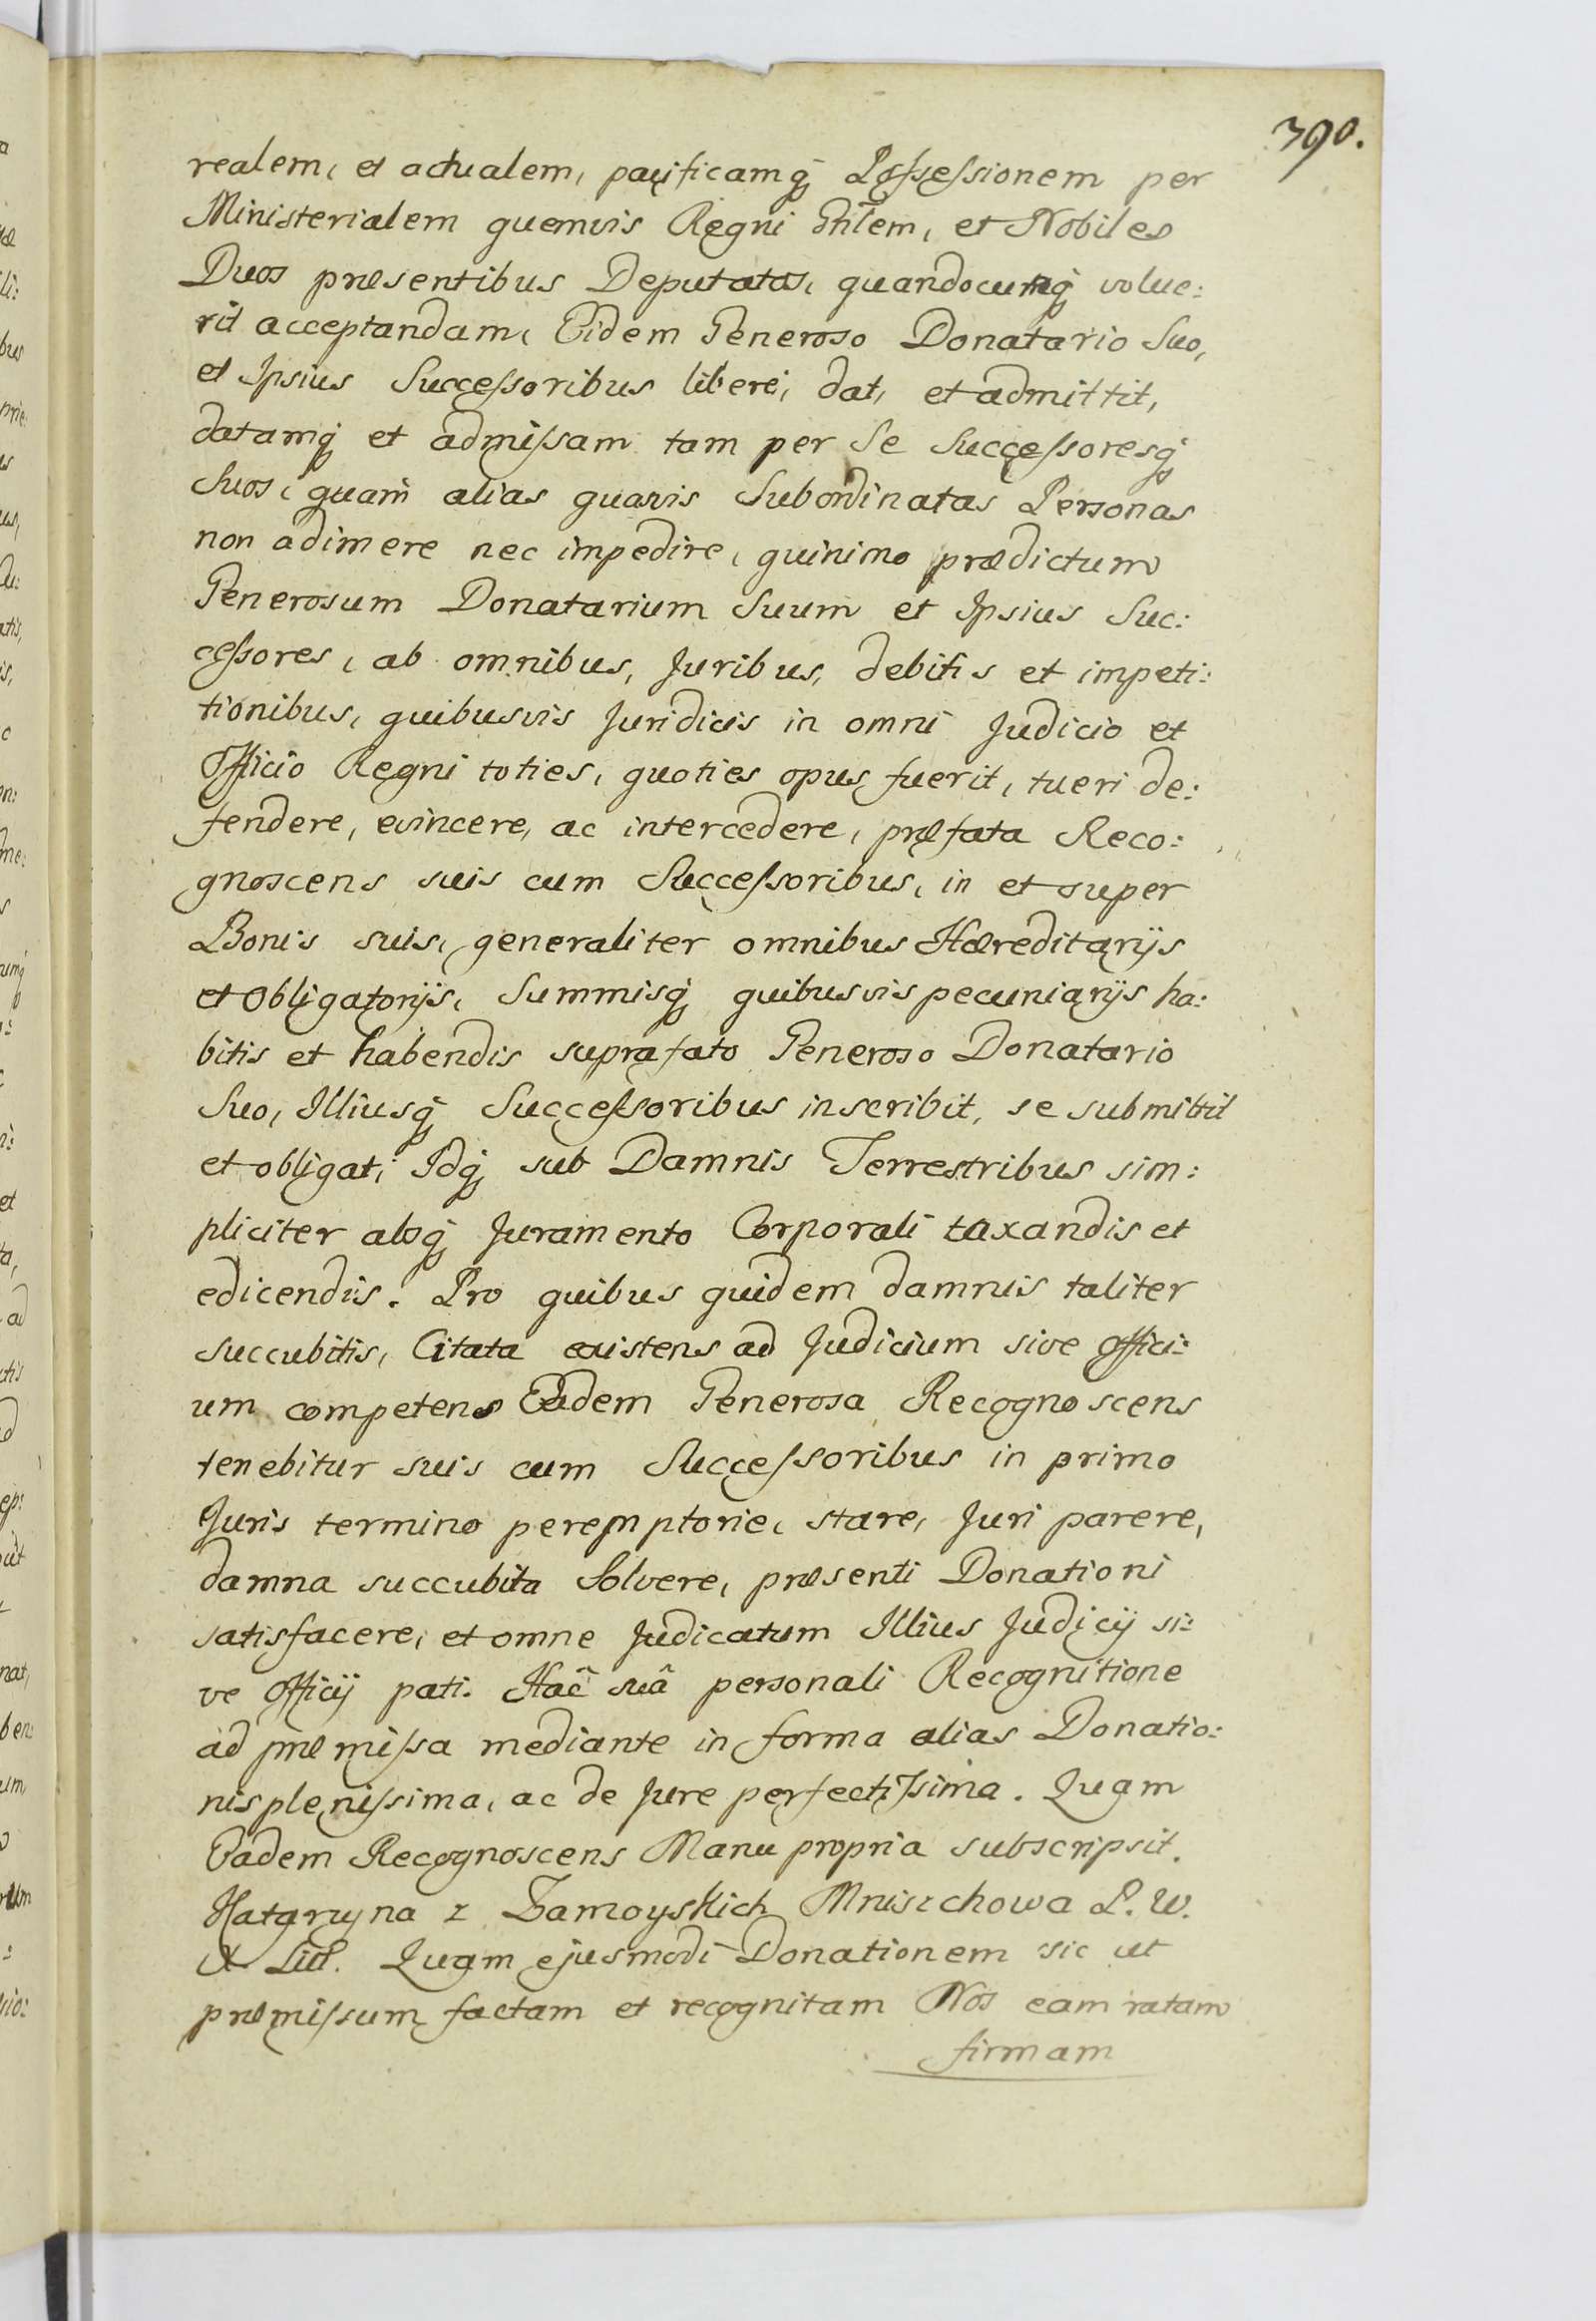 390.
realem, et actualem, pacificamq́ Possessionem per
Ministerialem quemvis Regni Gñlem, et Nobiles
Duos præsentibus Deputatos, quandocunq́ volue:
rit acceptandam, Eidem Generoso Donatario Suo,
et Ipsius Successoribus liberè, dat, et admittit,
datamq́ et admissam tam per Se Successoresq́
Suos, quam alias quasvis Subordinatas Personas
non adimere nec impedire, quinimo prædictum
Generosum Donatarium Suum et Ipsius Suc:
cessores, ab omnibus, Juribus, debitis et impeti:
tionibus, quibusvis Juridicis in omni Judicio et
Officio Regni toties, quoties opus fuerit, tueri de:
fendere, evincere, ac intercedere, præfata Reco:
gnoscens suis cum Successoribus, in et super
Bonis suis, generaliter omnibus Hæreditarijs
et Obligatorijs, Summisq́ quibusvis pecuniarijs ha:
bitis et habendis suprafato Generoso Donatario
Suo, Illiusq́ Successoribus inscribit, se submittit
et obligat; Idq́ sub Damnis Terrestribus sim:
pliciter absq́ Juramento Corporali taxandis et
edicendis. Pro quibus quidem damnis taliter
succubitis, Citata existens ad Judicium sive Offici:
um competens Eadem Generosa Recognoscens
tenebitur suis cum Successoribus in primo
Juris termino peremptorie, stare, Juri parere,
damna succubita Solvere, præsenti Donationi
satisfacere, et omne Judicatum Illius Judicij si:
ve Officij pati. Hac̑ suâ personali Recognitione
ad præmissa mediante in forma alias Donatio:
nis plenissima, ac de Jure perfectissima. Quam
Eadem Recognoscens Manu propria subscripsit.
Katarzyna z Zamoyskich Mniszchowa P. W.
X Lit. Quam ejusmodi Donationem sic ut
præmissum factam et recognitam Nos eam ratam
firmam